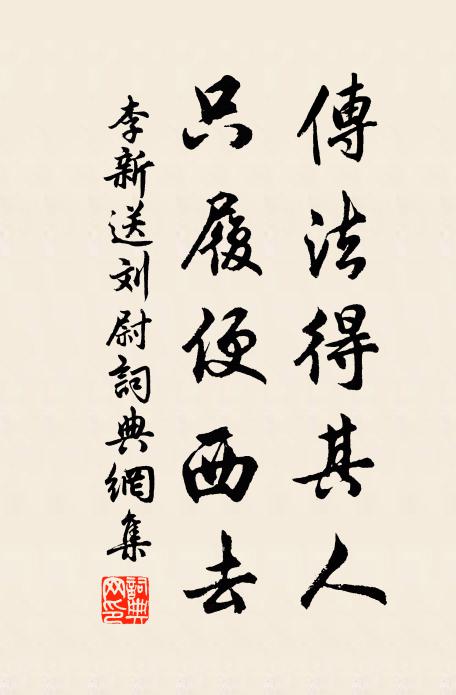 傳法得其人
只履便西去
李新送刘尉詞典網集
詞典網印